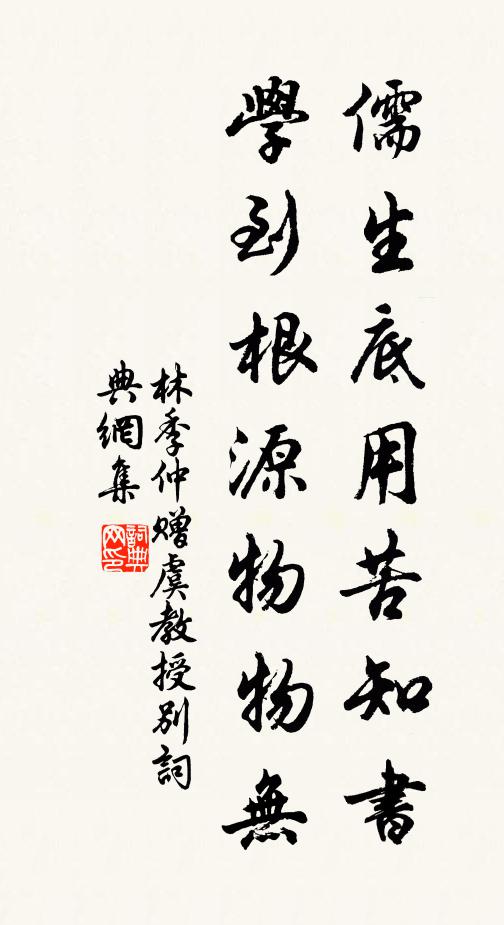 儒生底用苦知書
學到根源物物無
林季仲贈虞教授別詞
典網集
詞典網印